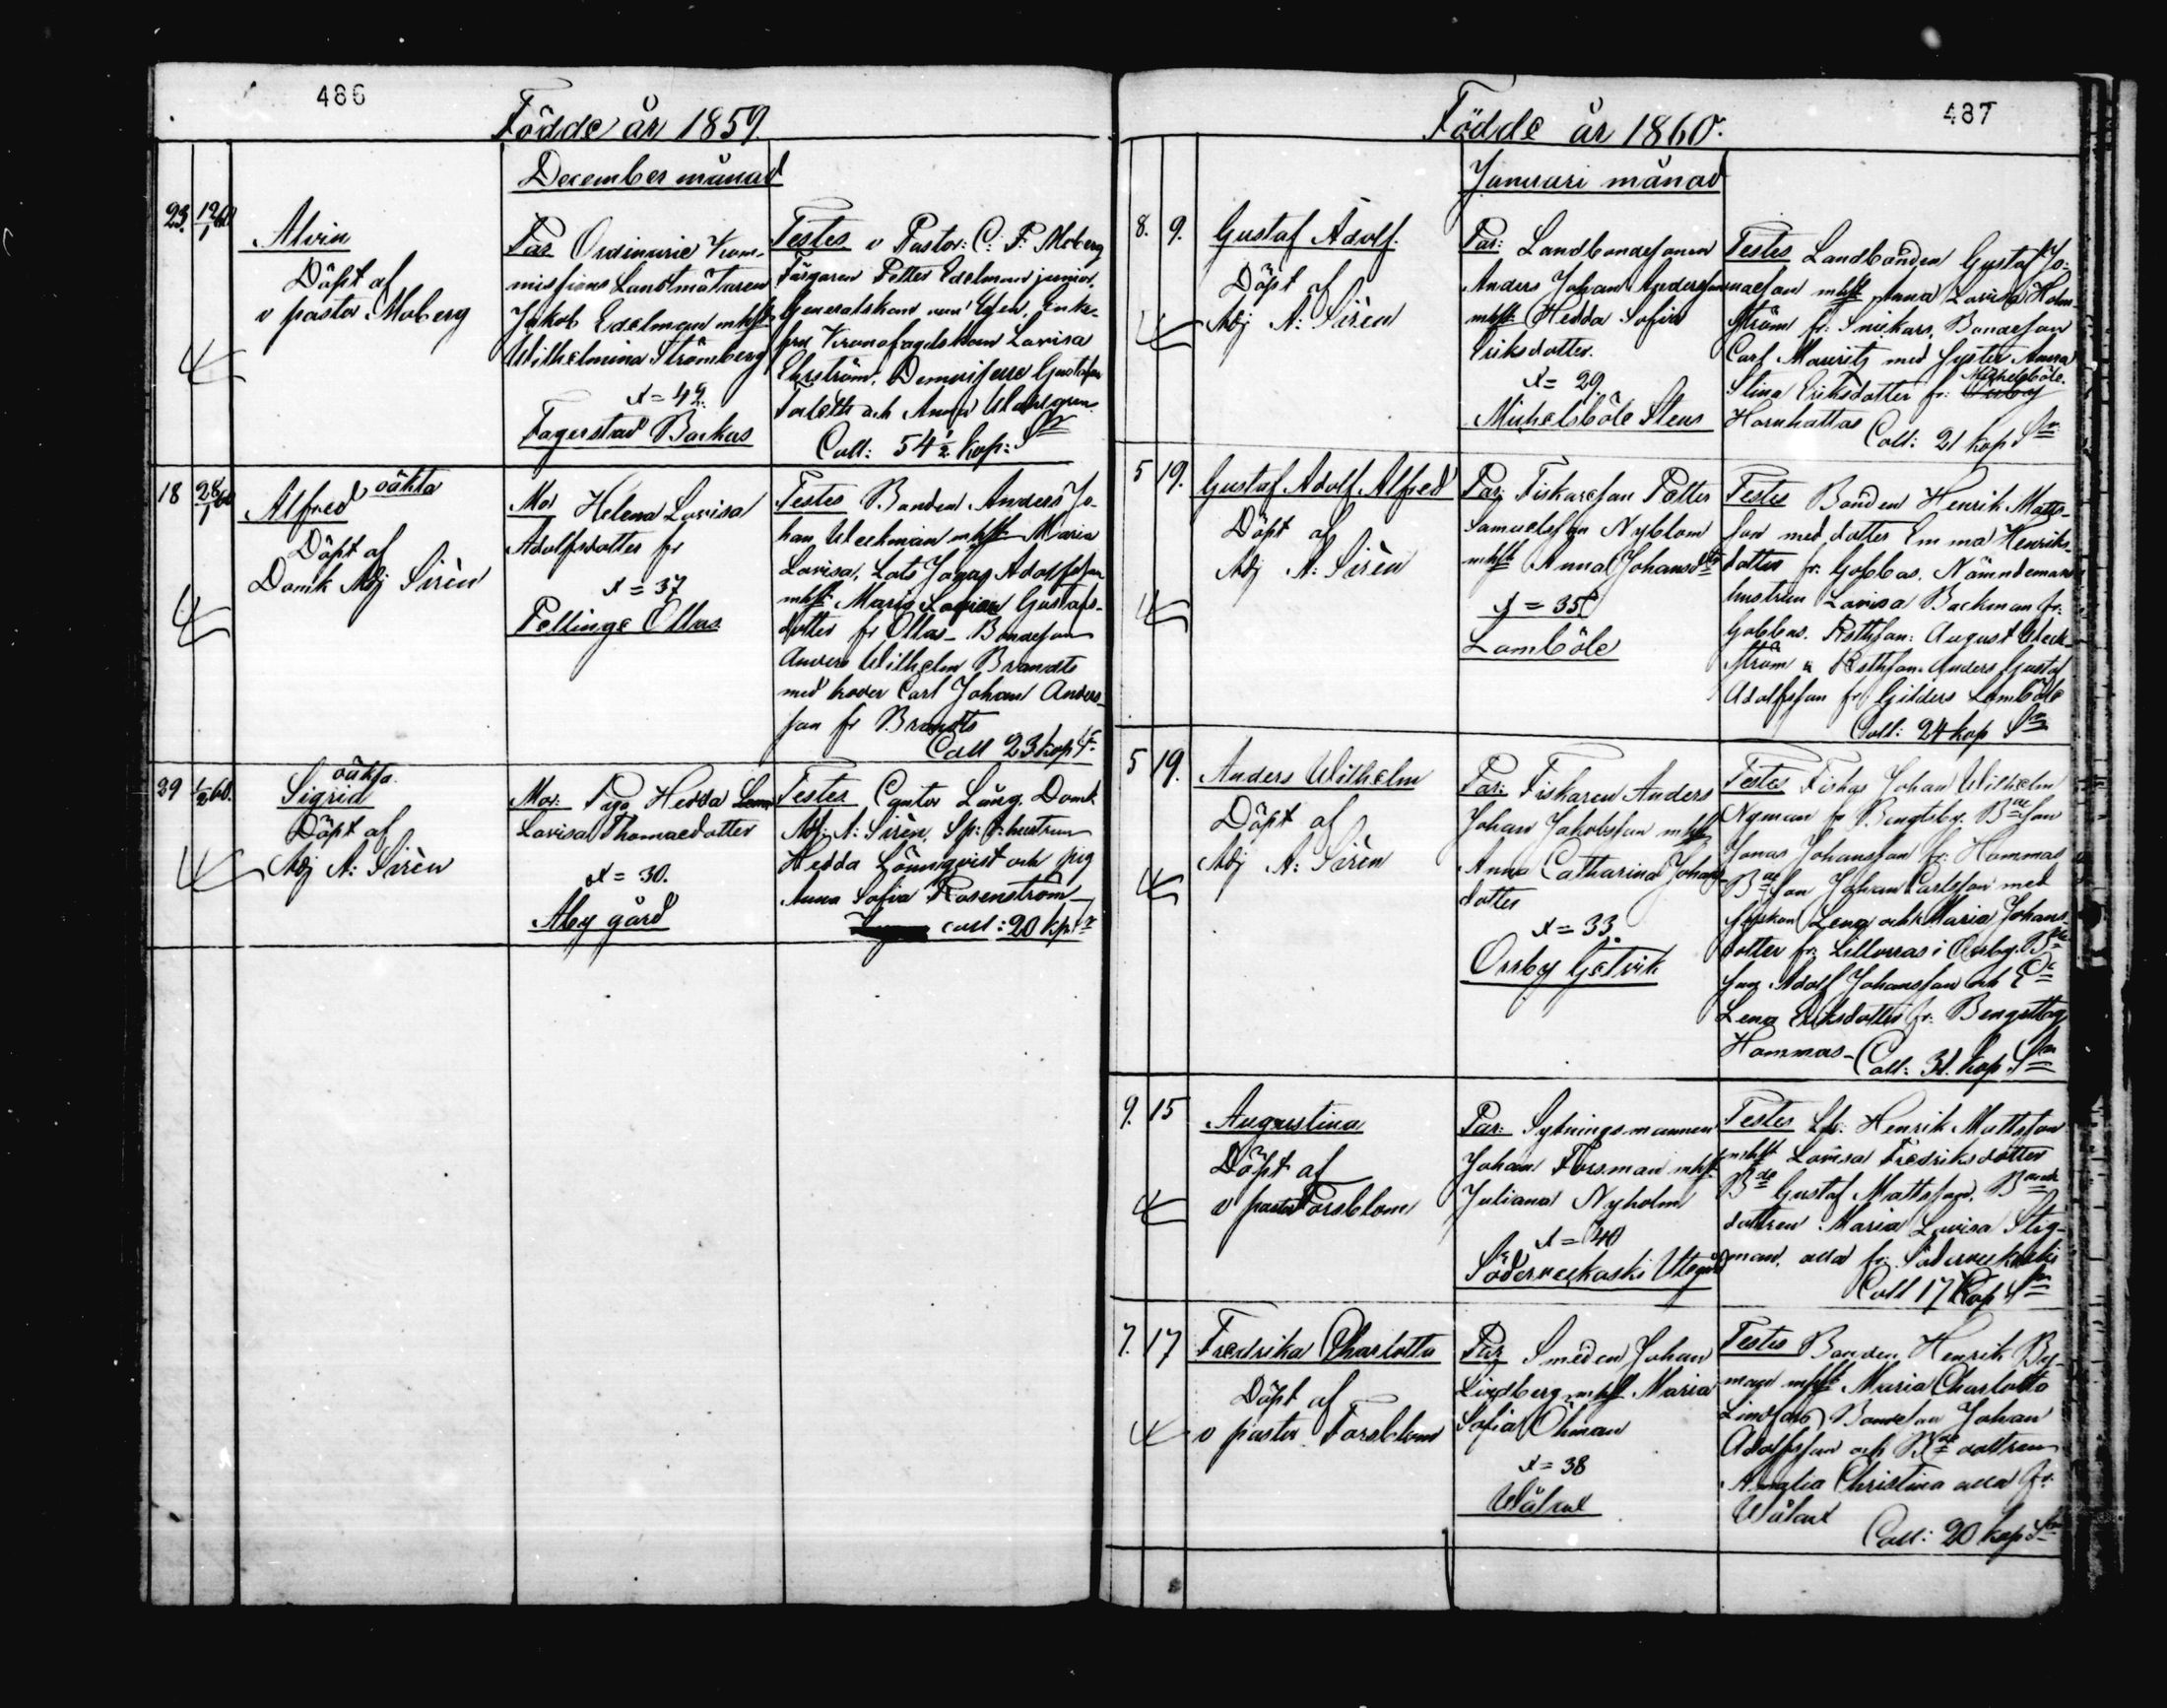 486
Födde år 1859.
December månad
23. 12/1 60
Alvin
Döpt af
v pastor Moberg
Par Ordinarie Kom-
missions Landtmätaren
Jakob Edelman mhst
Wilhelmina Strömberg
x = 42.
Fagerstad Backas
Testes v Pastor: C: F: Moberg
Färgaren Petter Edelman junior,
Generalskan von Essen, Enke-
fru Kronofogdskan Lovisa
Ehrström, Demoiselle Gustafva
och Anna Wahlgren
Coll: 54 1/2 kop: Sr
18 28/1 60
Alfred oäkta
Döpt af
Domk Adj Sirèn
Mor Helena Lovisa
Adolfsdotter fr
x = 37
Pellinge Ollas
Testes Bonden Anders Jo-
han Weckman mhst Maria
Lovisa, Lots Jonas Adolfsson
mhst Maria Lovisa Gustafs-
dotter fr Ollas - Bondeson
Anders Wilhelm Brandts
med broder Carl Johan Anders-
son fr Brandts
Coll 23 kop Sr
29 1/2 60.
Sigrid oäkta.
Döpt af
Adj A: Sirèn
Mor: Piga Hedda
Lovisa Thomasdotter
x = 30.
Aby gård
Testes Cantor Lång. Domk
Adj: A: Sirèn, Sp: hustrun
Hedda Lönnqvist och pig
Anna Sofia Rosenström
coll: 20 kop Sr
487
Födde år 1860.
Januari månad
8. 9.
Gustaf Adolf.
Döpt af
Adj A: Sirèn
Par: Landbondesonen
Anders Johan Andersson
mhst: Hedda Sofia
Eriksdotter.
x = 29.
Michelsböle Stens
Testes Landbonden Gustaf Jo-
nasson mhst Anna Lovisa Holm-
ström fr: Snickars, Bondeson
Carl Mauritz med syster Anna
Stina Eriksdotter fr: Michelsböle
Hornhattas
Coll: 21 kop Sr
5 19.
Gustaf Adolf Alfred
Döpt af
Adj A: Sirèn
Par: Fiskareson Petter
Samuelsson Nyblom
mhst Anna Johansdtr
x = 35
Lomböle
Testes Bonden Henrik Matts-
son med dotter Emma Henriks-
dotter fr: Gobbas, Nämndemans
hustrun Lovisa Backman fr:
Gobbas. Rsthson: August Weck-
ström & Rsthson: Anders Gustaf
Adolfsson fr: Gilders Lomböle
Coll: 24 kop Sr
5 19.
Anders Wilhelm
Döpt af
Adj A: Sirèn
Par: Fiskaren Anders
Johan Jakobsson mhst
Anna Catharina Johans-
dotter
x = 33.
Orrby Getvik
Testes Fiskar Johan Wilhelm
Nyman fr Bengtsby. Bdeson
Jonas Johansson fr: Hommas
Bdeson Johan Carlsson med
Lena och Maria Johans-
dotter fr: Lillorras i Orrby. Bde
son Adolf Johansson och
Lena Eriksdotter fr: Bengtsby
Hommas - Coll: 31 kop Sr
9. 15
Augustina
Döpt af
v pastor Forsblom
Par: Sytningsmannen
Johan Forsman mhst
Juliana Nyholm
x = 40
Söderveckoski Utegård
Testes Lb: Henrik Mattsson
mhst Lovisa Fredriksdotter
Bde Gustaf Mattsson, Bonde
dottren Maria Lovisa Stig-
man, alla fr: Söderveckoski
Coll 17 Kop Sr
7. 17
Fredrika Charlotta
Döpt af
v pastor Forsblom
Par Smeden Johan
Lindberg mhst Maria
Sofia Öhman
x = 38
Wålax
Testes Bonden Henrik By-
man mhst Maria Charlotta
Lindfors, Bondeson Johan
Adolfsson och Bde dottren
Amalia Christina alla fr:
Wålax
Coll: 20 kop Sr